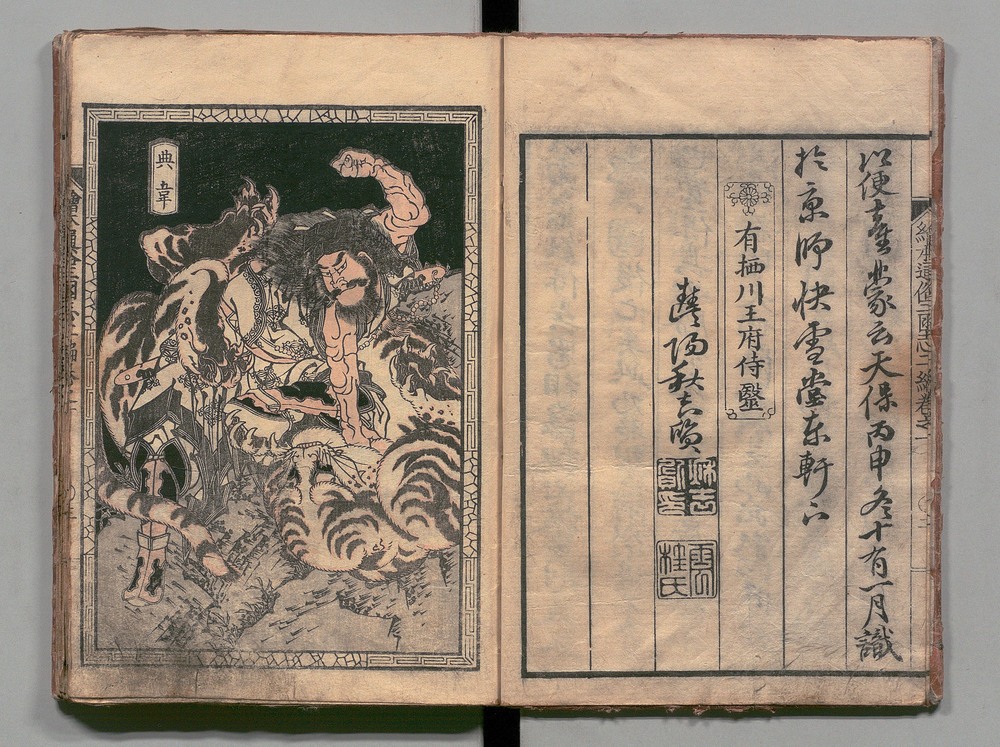 繪本通俗三國志
以便童蒙云天保丙申冬十有一月識
於京師快雪堂東軒下
有栖川王府侍毉
陽秋吉質
典韋